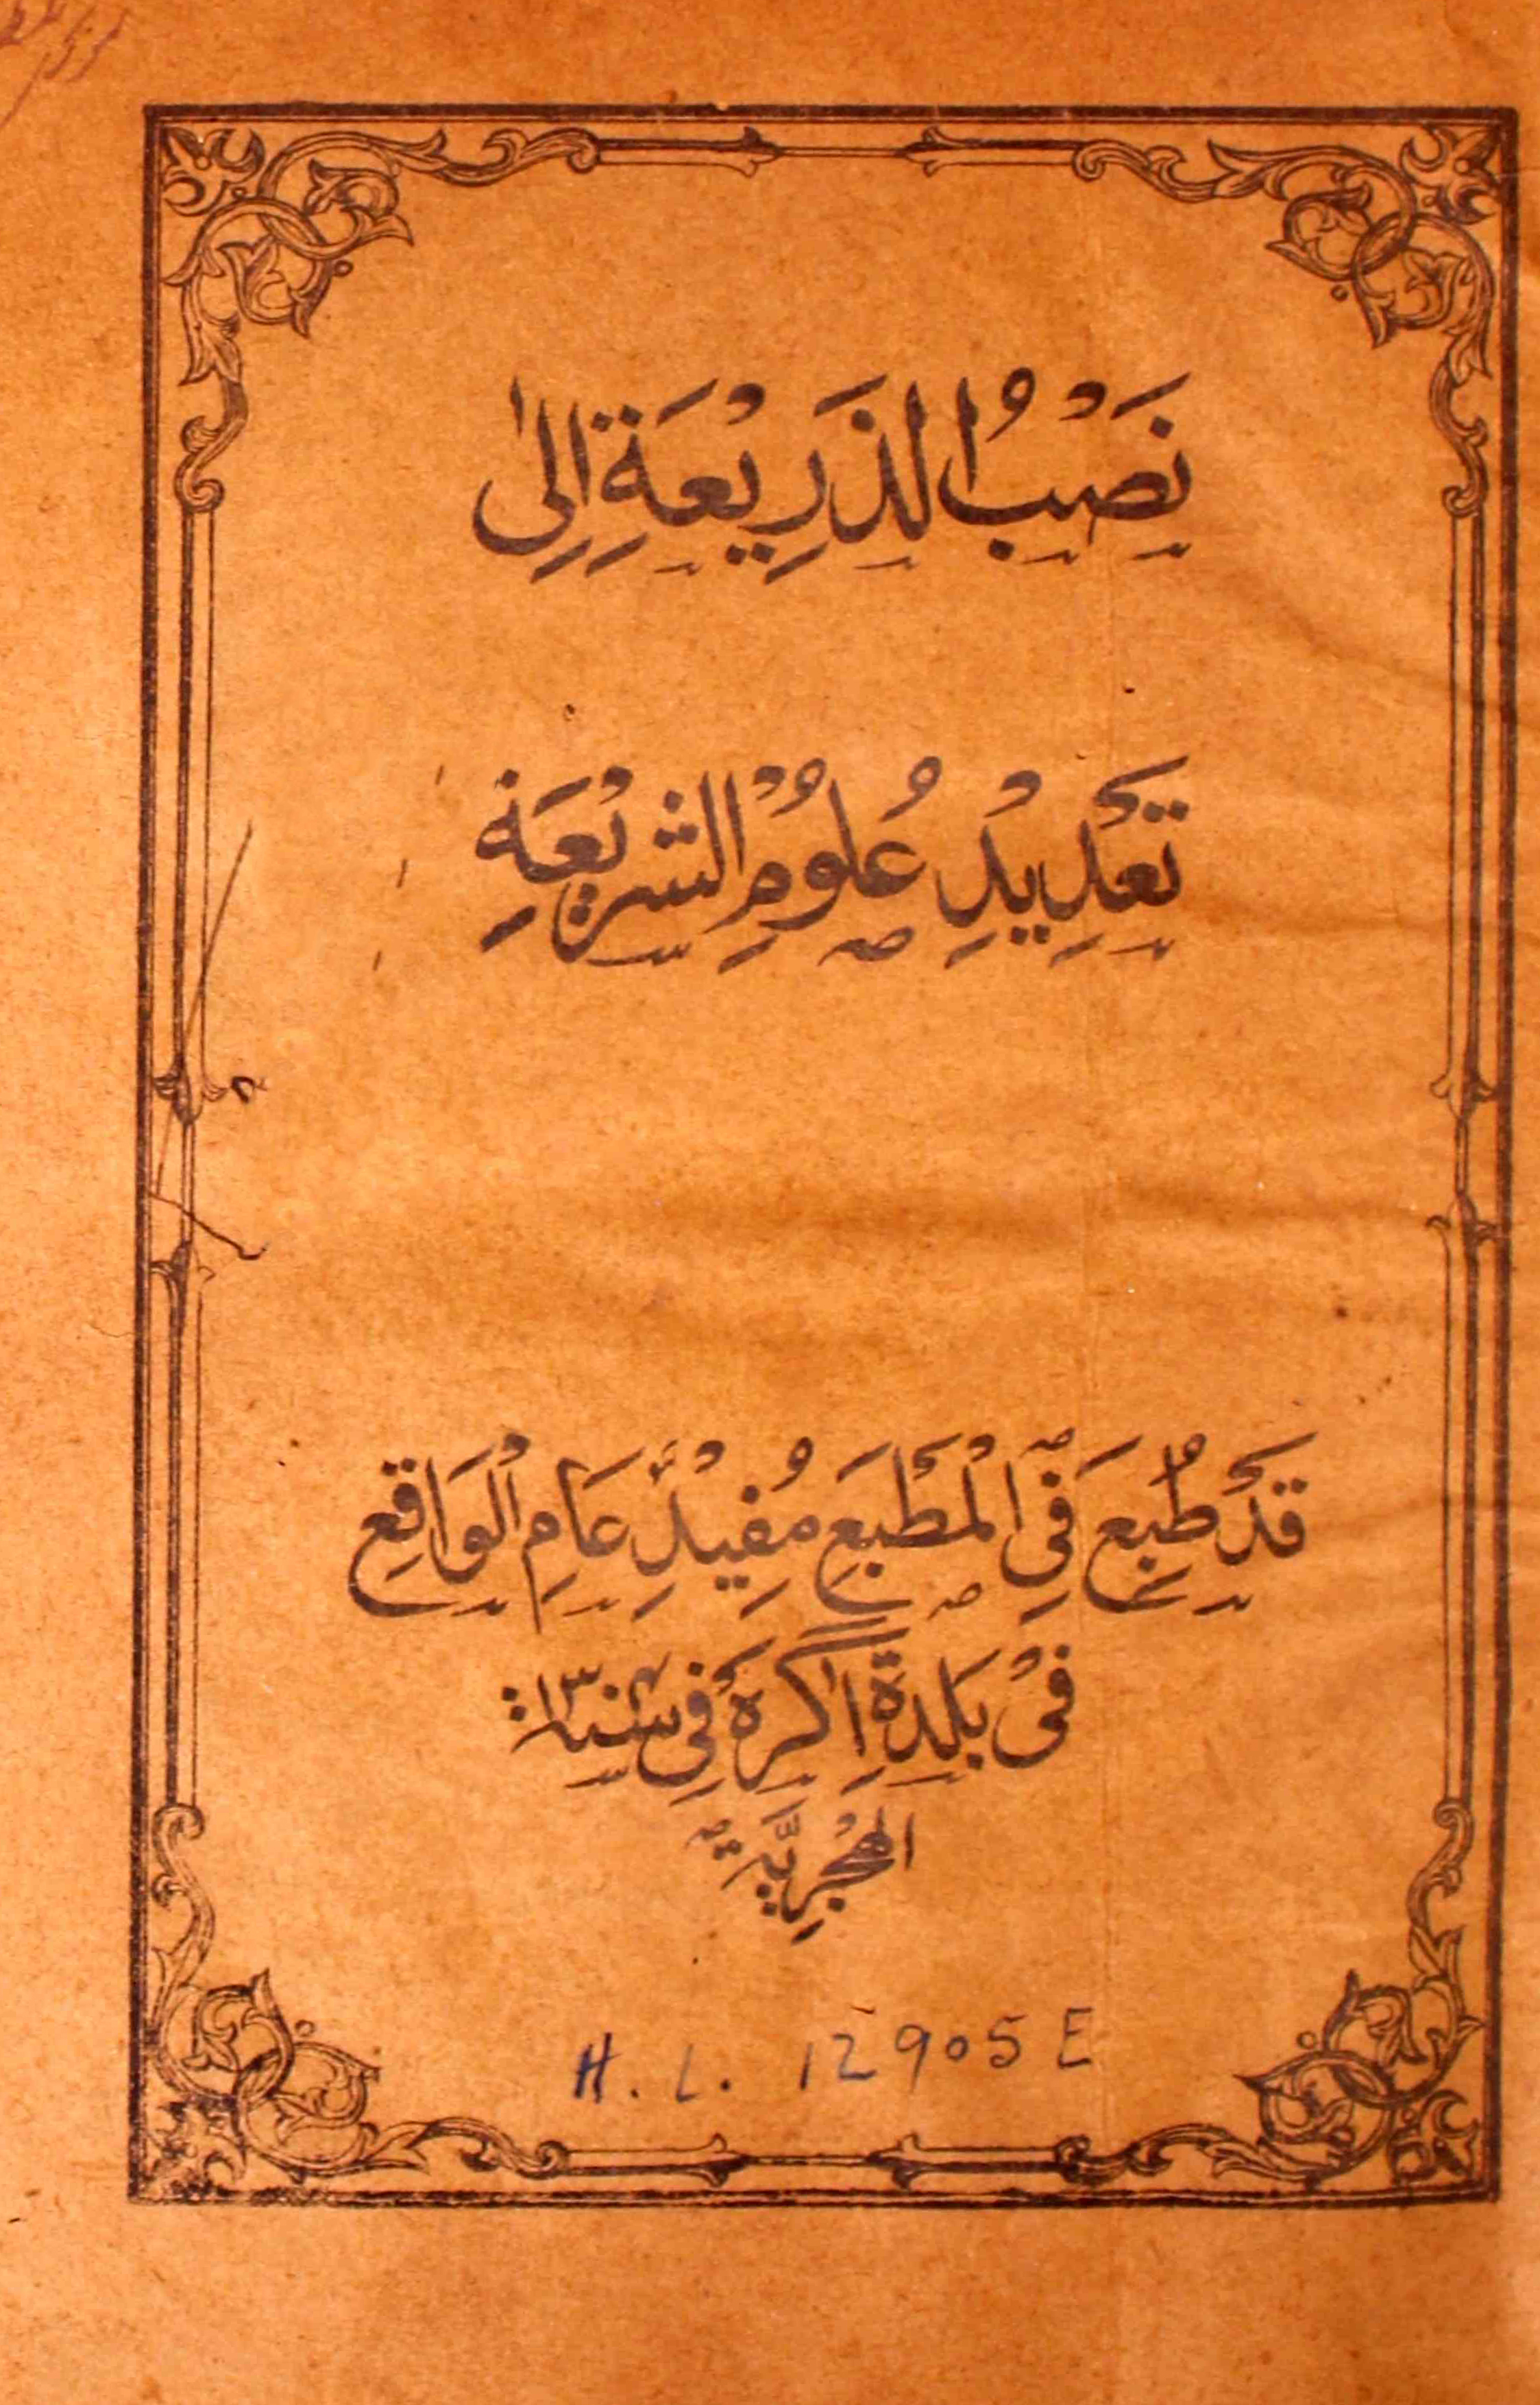 نَصْبُ الذَرِيْعَةِ اِلىٰ
تَعْدِيْدِ عُلُوْمِ الشَرِيْعَةِ
قَدْ طُبِعَ فِی الْمَطْبَعِ مُفِيْدِ عَامِ الْوَاقِعِ
فىْ بَلدَةِ اٰكرَهْ فِی سنة ١٣٠٠
الهِجْرِيَّة
H. L. 12905 E